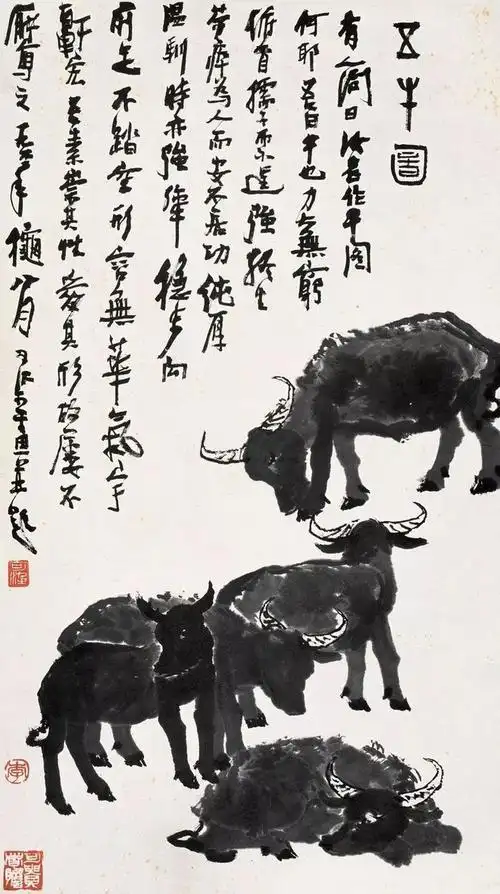 五牛圖
有人問曰汝喜作牛圖
何耶吾曰牛也力大無窮
俯首孺子而不逞強終生
勞瘁為人而安不居功純厚
溫馴時亦強犟穩步向
前足不踏空形容無華氣宇
軒宏吾素崇其性愛其形故屢不
厭寫之 八月可染 題
可染
李